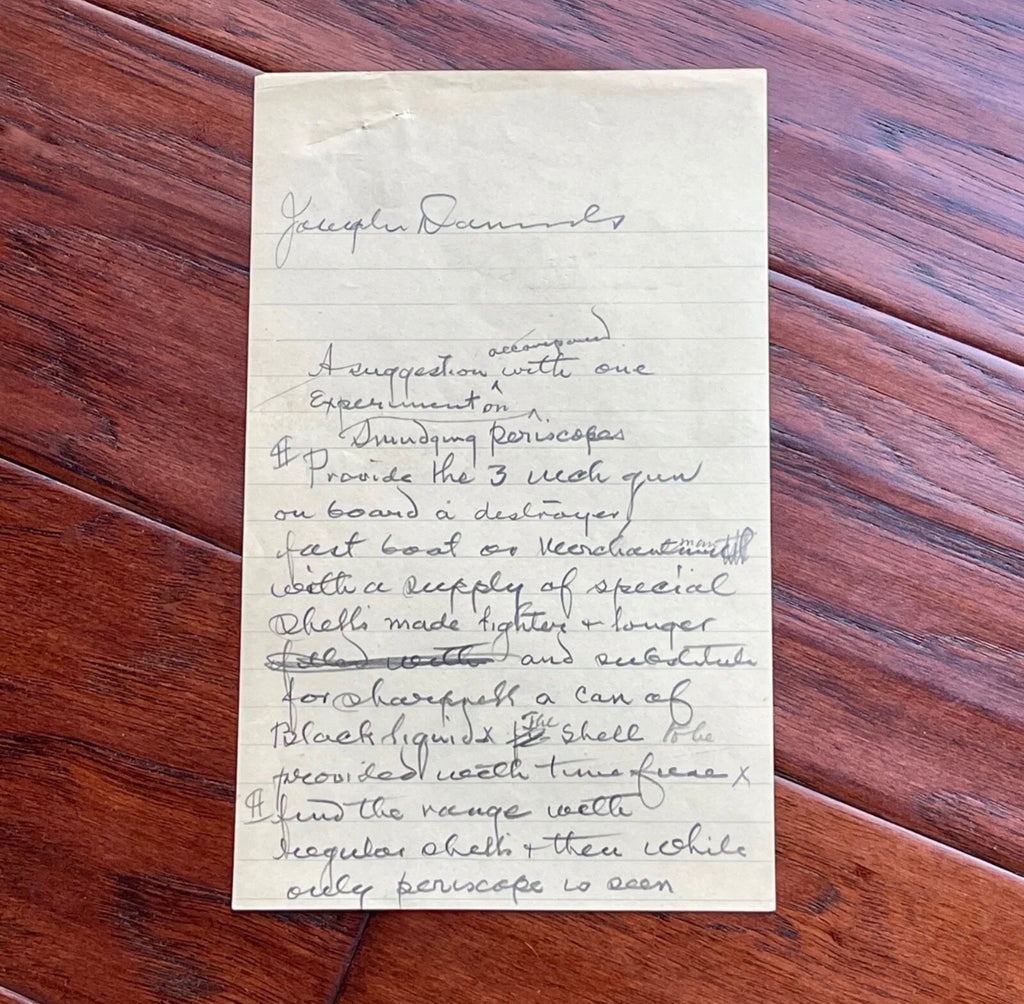 Joseph Daniels
accompanied
A suggestion with one
Experiment on
Smudging periscopes
Provide the 3 inch gun
on board a destroyer,
fast boat or Merchantman
with a supply of special
shells made lighter + longer
filled with and substitute
for sharppell a can of
Black liquid x The Shell to be
provided with time fuse x
find the range with
regular shells + then while
only periscope is seen